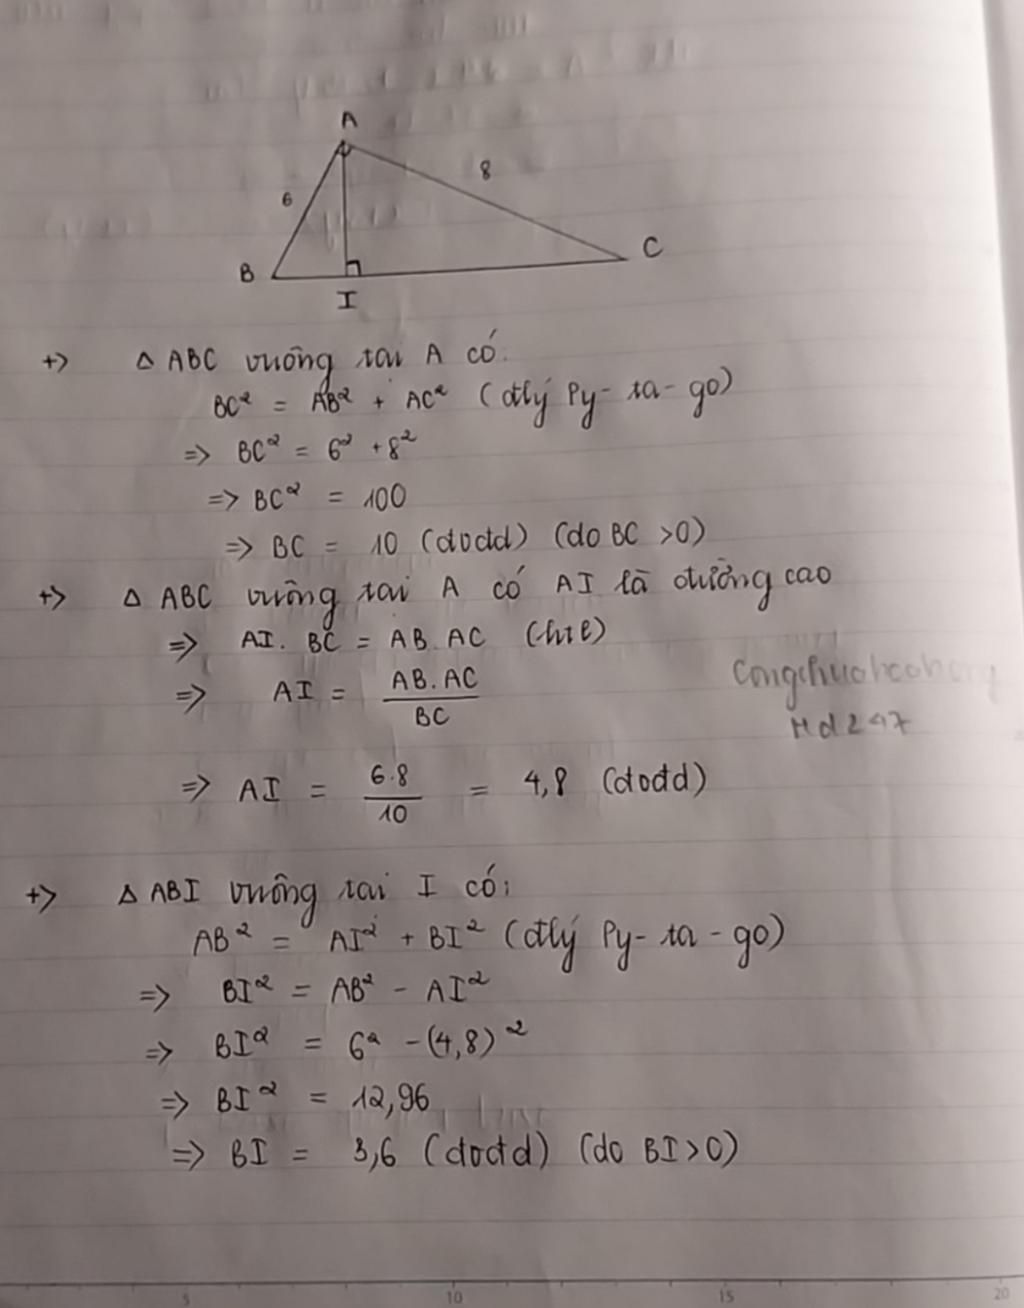 A
6
8
B
C
I
+> Δ ABC vuông tại A có:
BC² = AB² + AC² (đlý Py-ta-go)
=> BC² = 6² + 8²
=> BC² = 100
=> BC = 10 (đvđd) (do BC >0)
+> Δ ABC vuông tại A có AI là đường cao
=> AI. BC = AB. AC (htl)
=> AI = AB. AC / BC
=> AI = 6.8 / 10 = 4,8 (đvđd)
+> Δ ABI vuông tại I có:
AB² = AI² + BI² (đlý Py-ta-go)
=> BI² = AB² - AI²
=> BI² = 6² - (4,8)²
=> BI² = 12,96
=> BI = 3,6 (đvđd) (do BI>0)
5 10 15 20